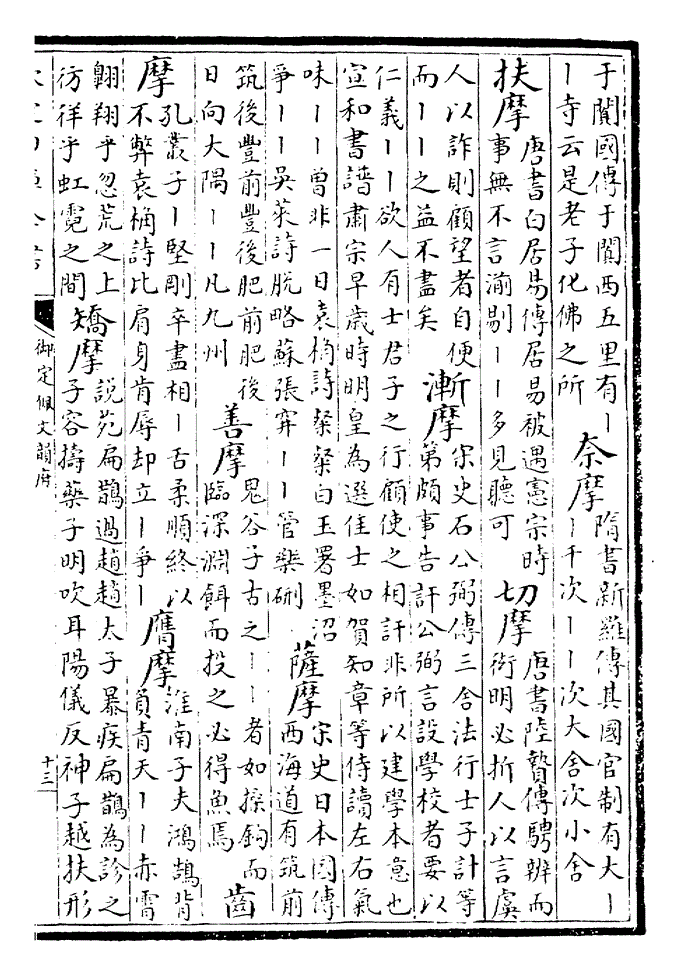 于闐國傳于闐西五里有｜
｜寺云是老子化佛之所
奈摩
隋書新羅傳其國官制有大｜
｜千次｜｜次大舍次小舍
扶摩
唐書白居易傳居易被遇憲宗時
事無不言湔剔｜｜多見聽可
切摩
唐書陸贄傳騁辨而
術明必折人以言虞
人以詐則顧望者自便
而｜｜之益不盡矣
漸摩
宋史石公弼傳三舍法行士子計等
第頗事告訐公弼言設學校者要以
仁義｜｜欲人有士君子之行顧使之相訐非所以建學本意也
宣和書譜肅宗早歲時明皇為選佳士如賀知章等侍讀左右氣
味｜｜曽非一日袁桷詩粲粲白玉署墨沼
爭｜｜吳萊詩脫略蘇張穽｜｜管樂硎
薩摩
宋史日本國傳
西海道有筑前
筑後豐前豐後肥前肥後
日向大隅｜｜凡九州
善摩
鬼谷子古之｜｜者如操鉤而
臨深淵餌而投之必得魚焉
齒
摩
孔叢子｜堅剛卒盡相｜舌柔順終以
不弊袁桷詩比肩身肯辱却立｜爭｜
膺摩
淮南子夫鴻鵠背
負青天｜｜赤霄
翺翔乎忽荒之上
彷徉乎虹霓之間
矯摩
說苑扁鵲過趙趙太子暴疾扁鵲為診之
子容擣藥子明吹耳陽儀反神子越扶形
御定佩文韻府
十三